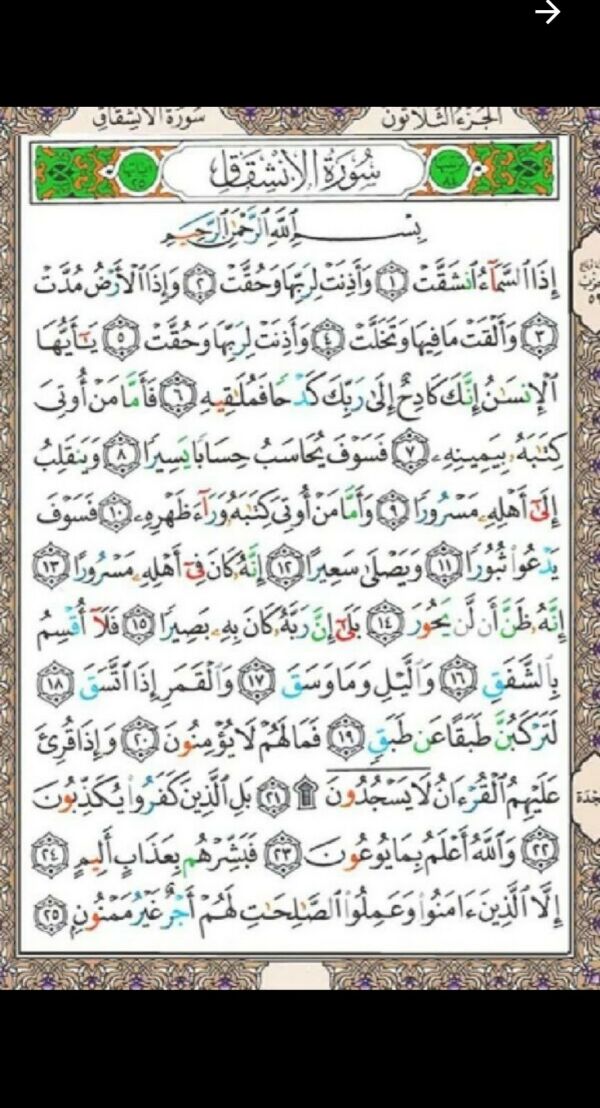 سورة الانشقاق الجزء الثلاثون
سُورَةُ الإِنشِقَاقِ
بِسْمِ اللَّهِ الرَّحْمَٰنِ الرَّحِيمِ
إِذَا السَّمَاءُ انشَقَّتْ ١ وَأَذِنَتْ لِرَبِّهَا وَحُقَّتْ ٢ وَإِذَا الْأَرْضُ مُدَّتْ
٣ وَأَلْقَتْ مَا فِيهَا وَتَخَلَّتْ ٤ وَأَذِنَتْ لِرَبِّهَا وَحُقَّتْ ٥ يَٰٓأَيُّهَا
الْإِنسَٰنُ إِنَّكَ كَادِحٌ إِلَىٰ رَبِّكَ كَدْحًا فَمُلَٰقِيهِ ٦ فَأَمَّا مَنْ أُوتِيَ
كِتَٰبَهُۥ بِيَمِينِهِۦ ٧ فَسَوْفَ يُحَاسَبُ حِسَابًا يَسِيرًا ٨ وَيَنقَلِبُ
إِلَىٰٓ أَهْلِهِۦ مَسْرُورًا ٩ وَأَمَّا مَنْ أُوتِيَ كِتَٰبَهُۥ وَرَآءَ ظَهْرِهِۦ ١٠ فَسَوْفَ
يَدْعُوا۟ ثُبُورًا ١١ وَيَصْلَىٰ سَعِيرًا ١٢ إِنَّهُۥ كَانَ فِىٓ أَهْلِهِۦ مَسْرُورًا ١٣
إِنَّهُۥ ظَنَّ أَن لَّن يَحُورَ ١٤ بَلَىٰٓ إِنَّ رَبَّهُۥ كَانَ بِهِۦ بَصِيرًا ١٥ فَلَآ أُقْسِمُ
بِالشَّفَقِ ١٦ وَالَّيْلِ وَمَا وَسَقَ ١٧ وَالْقَمَرِ إِذَا اتَّسَقَ ١٨
لَتَرْكَبُنَّ طَبَقًا عَن طَبَقٍ ١٩ فَمَا لَهُمْ لَا يُؤْمِنُونَ ٢٠ وَإِذَا قُرِئَ
عَلَيْهِمُ الْقُرْءَانُ لَا يَسْجُدُونَ ۩ ٢١ بَلِ الَّذِينَ كَفَرُوا۟ يُكَذِّبُونَ
٢٢ وَاللَّهُ أَعْلَمُ بِمَا يُوعُونَ ٢٣ فَبَشِّرْهُم بِعَذَابٍ أَلِيمٍ ٢٤
إِلَّا الَّذِينَ ءَامَنُوا۟ وَعَمِلُوا۟ الصَّٰلِحَٰتِ لَهُمْ أَجْرٌ غَيْرُ مَمْنُونٍ ٢٥